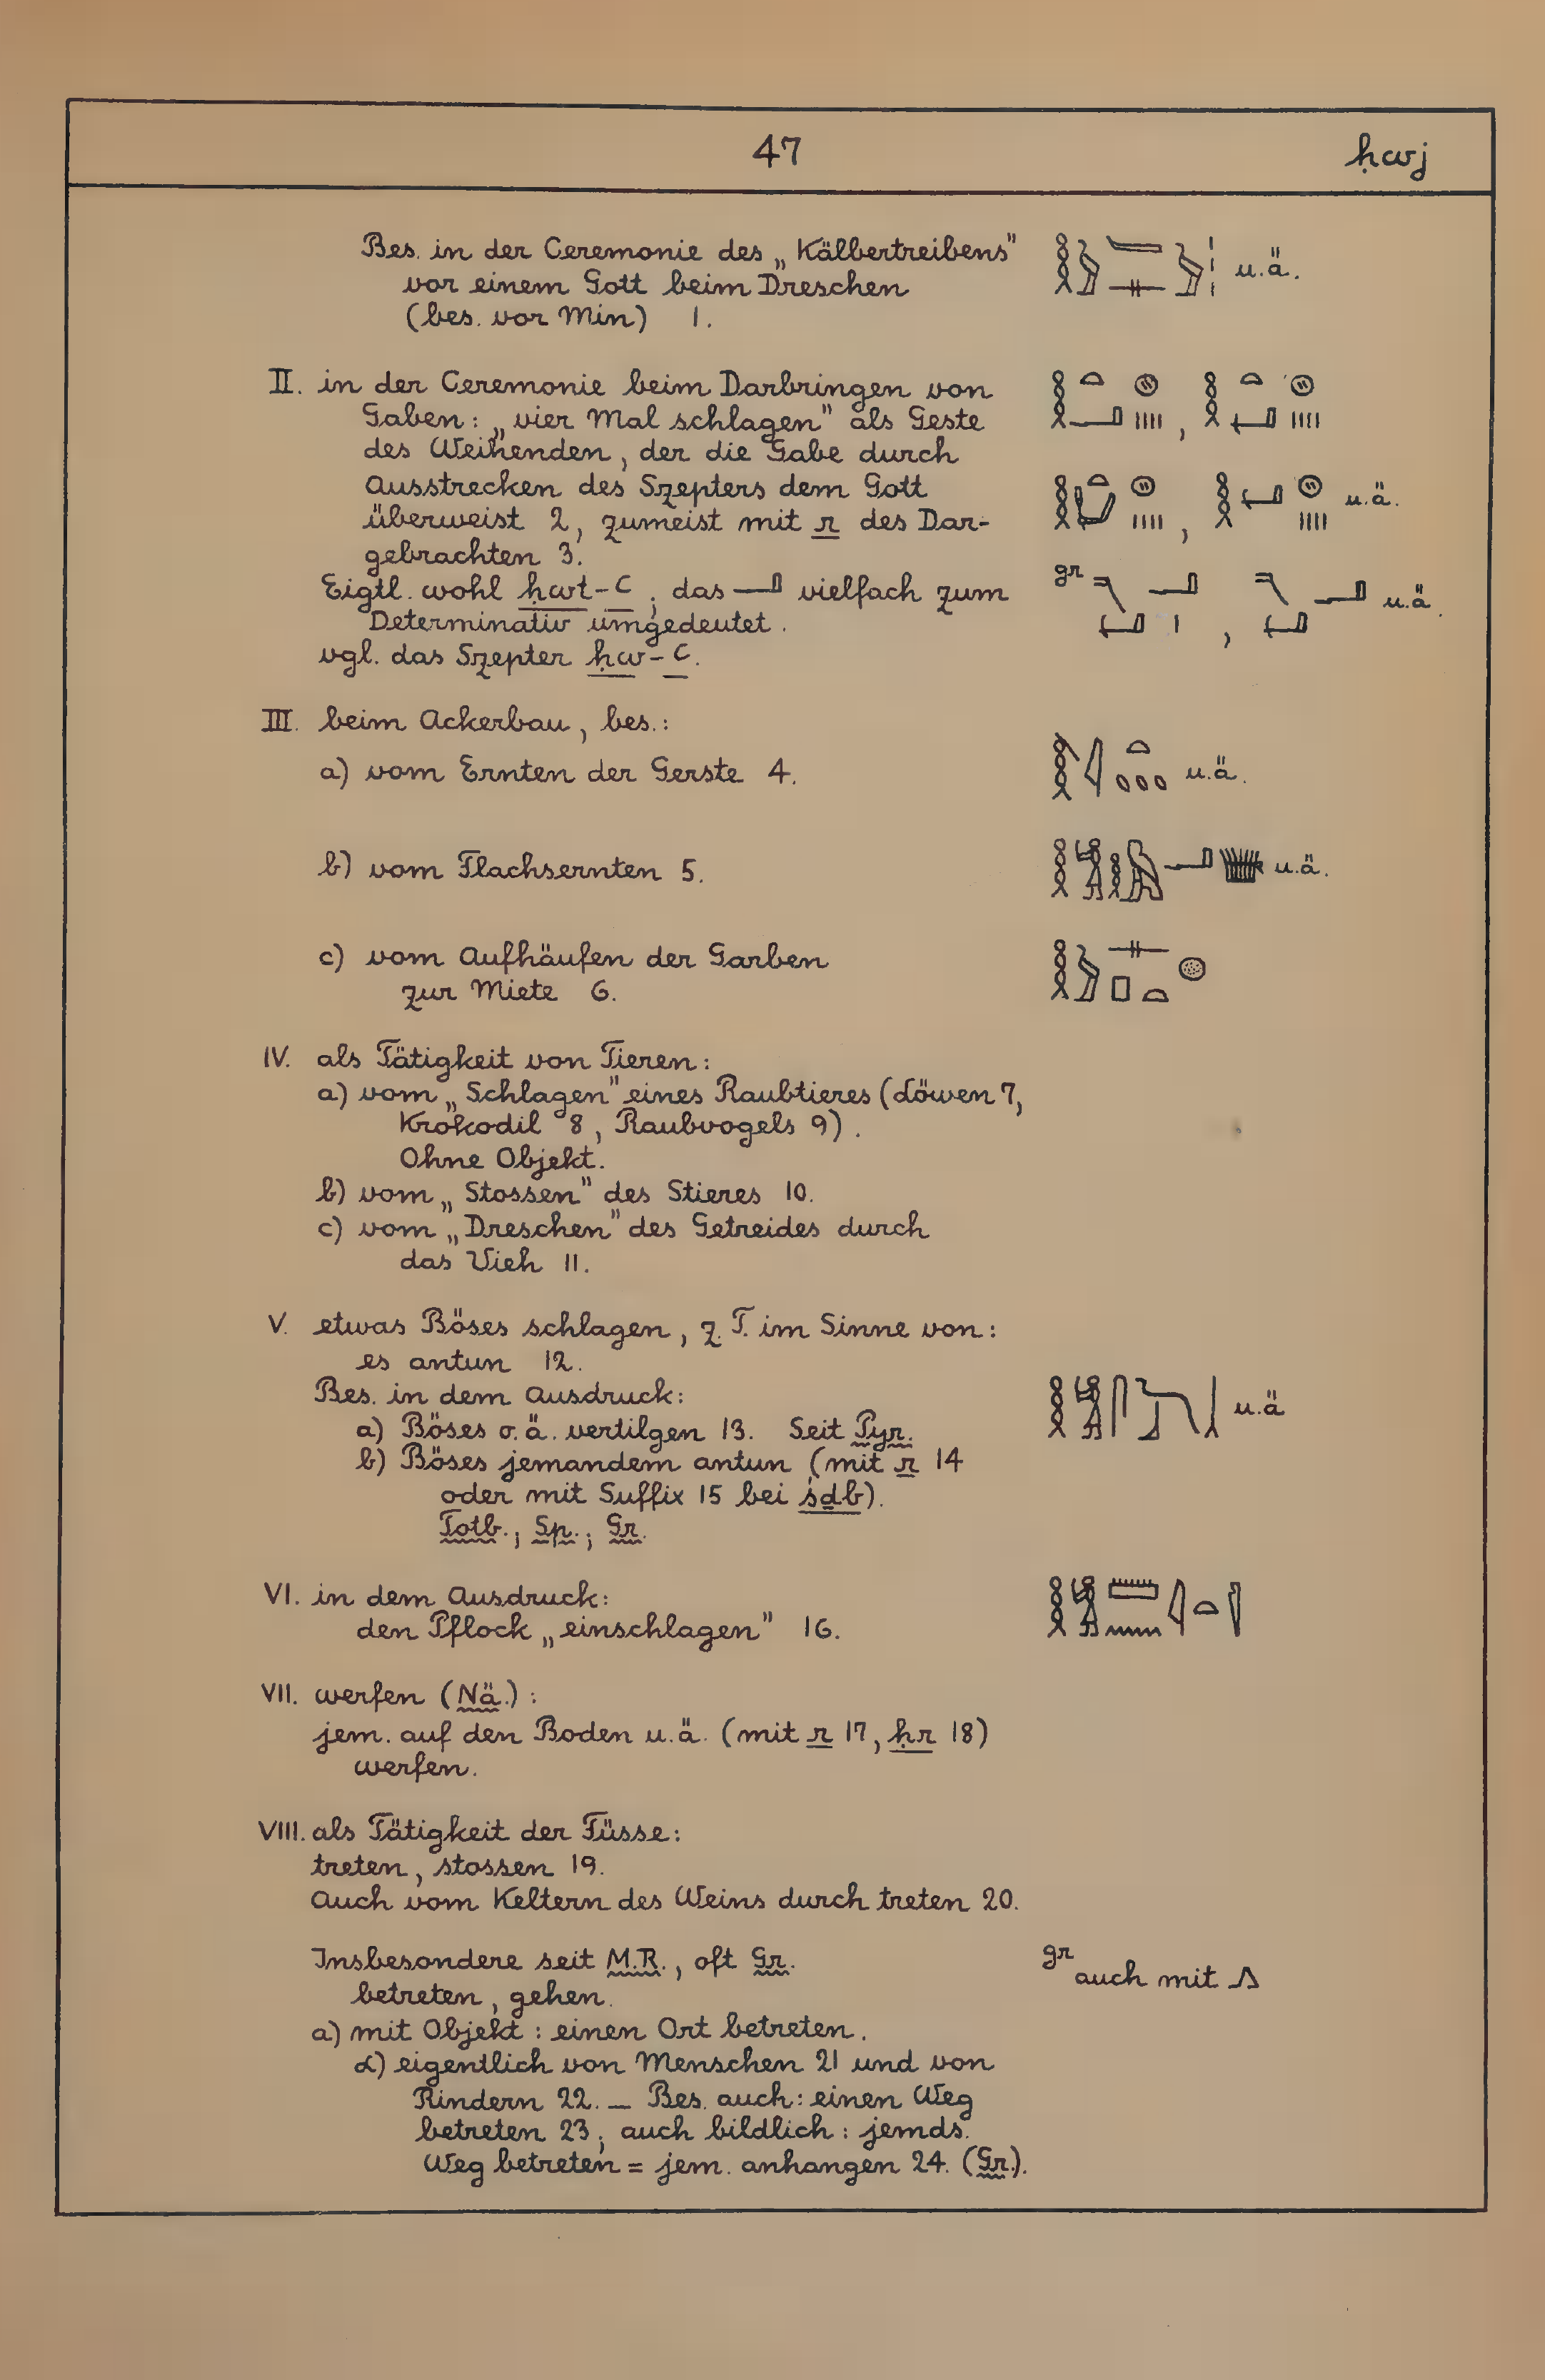 47 ḥwj
Bes. in der Ceremonie des „Kälbertreibens" u.ä.
vor einem Gott beim Dreschen
(bes. vor Min) 1.
II. in der Ceremonie beim Darbringen von
Gaben: „vier Mal schlagen" als Geste
des Weihenden, der die Gabe durch
Ausstrecken des Szepters dem Gott u.ä.
überweist 2, zumeist mit r des Dar-
gebrachten 3.
Eigtl. wohl ḥwt-ꜥ, das 𓂝 vielfach zum gr u.ä.
Determinativ umgedeutet.
vgl. das Szepter ḥw-ꜥ.
III. beim Ackerbau, bes.:
a) vom Ernten der Gerste 4. u.ä.
b) vom Flachsernten 5. u.ä.
c) vom Aufhäufen der Garben
zur Miete 6.
IV. als Tätigkeit von Tieren:
a) vom „Schlagen" eines Raubtieres (Löwen 7,
Krokodil 8, Raubvogels 9).
Ohne Objekt.
b) vom „Stossen" des Stieres 10.
c) vom „Dreschen" des Getreides durch
das Vieh 11.
V. etwas Böses schlagen, z.T. im Sinne von:
es antun 12.
Bes. in dem Ausdruck: u.ä
a) Böses o.ä. vertilgen 13. Seit Pyr.
b) Böses jemandem antun (mit r 14
oder mit Suffix 15 bei śḏb).
Totb.; Sp.; Gr.
VI. in dem Ausdruck:
den Pflock „einschlagen" 16.
VII. werfen (Nä.):
jem. auf den Boden u.ä. (mit r 17, ḥr 18)
werfen.
VIII. als Tätigkeit der Füsse:
treten, stossen 19.
Auch vom Keltern des Weins durch treten 20.
Insbesondere seit M.R., oft Gr. gr auch mit 𓂻
betreten, gehen.
a) mit Objekt: einen Ort betreten.
α) eigentlich von Menschen 21 und von
Rindern 22. – Bes. auch: einen Weg
betreten 23; auch bildlich: jemds.
Weg betreten = jem. anhangen 24. (Gr.).